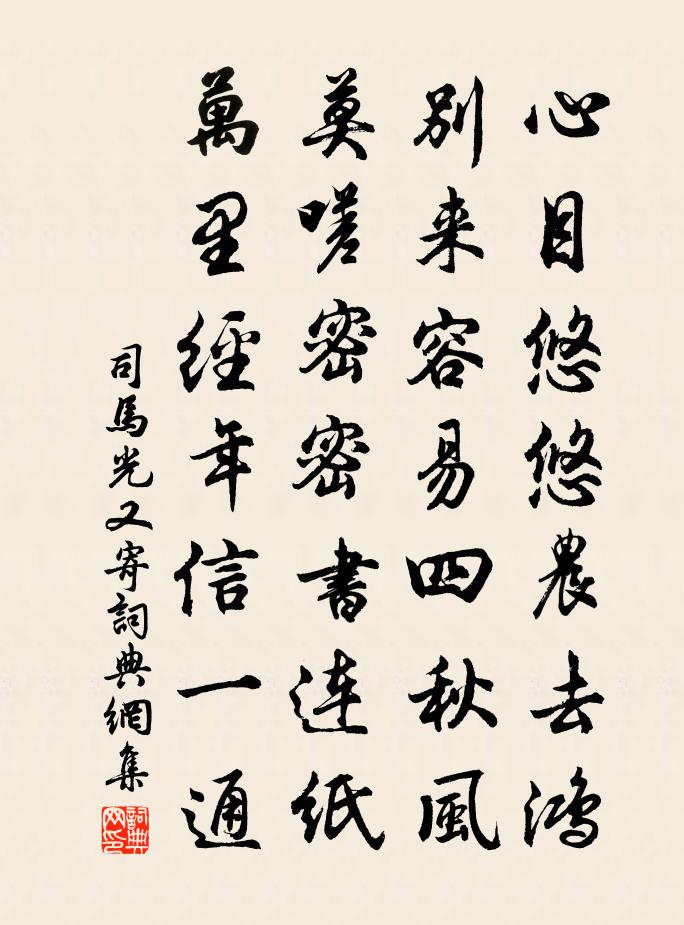 心目悠悠農去鴻
別来容易四秋風
莫嗟密密書連紙
萬里經年信一通
司馬光又寄詞典網集
詞典網印